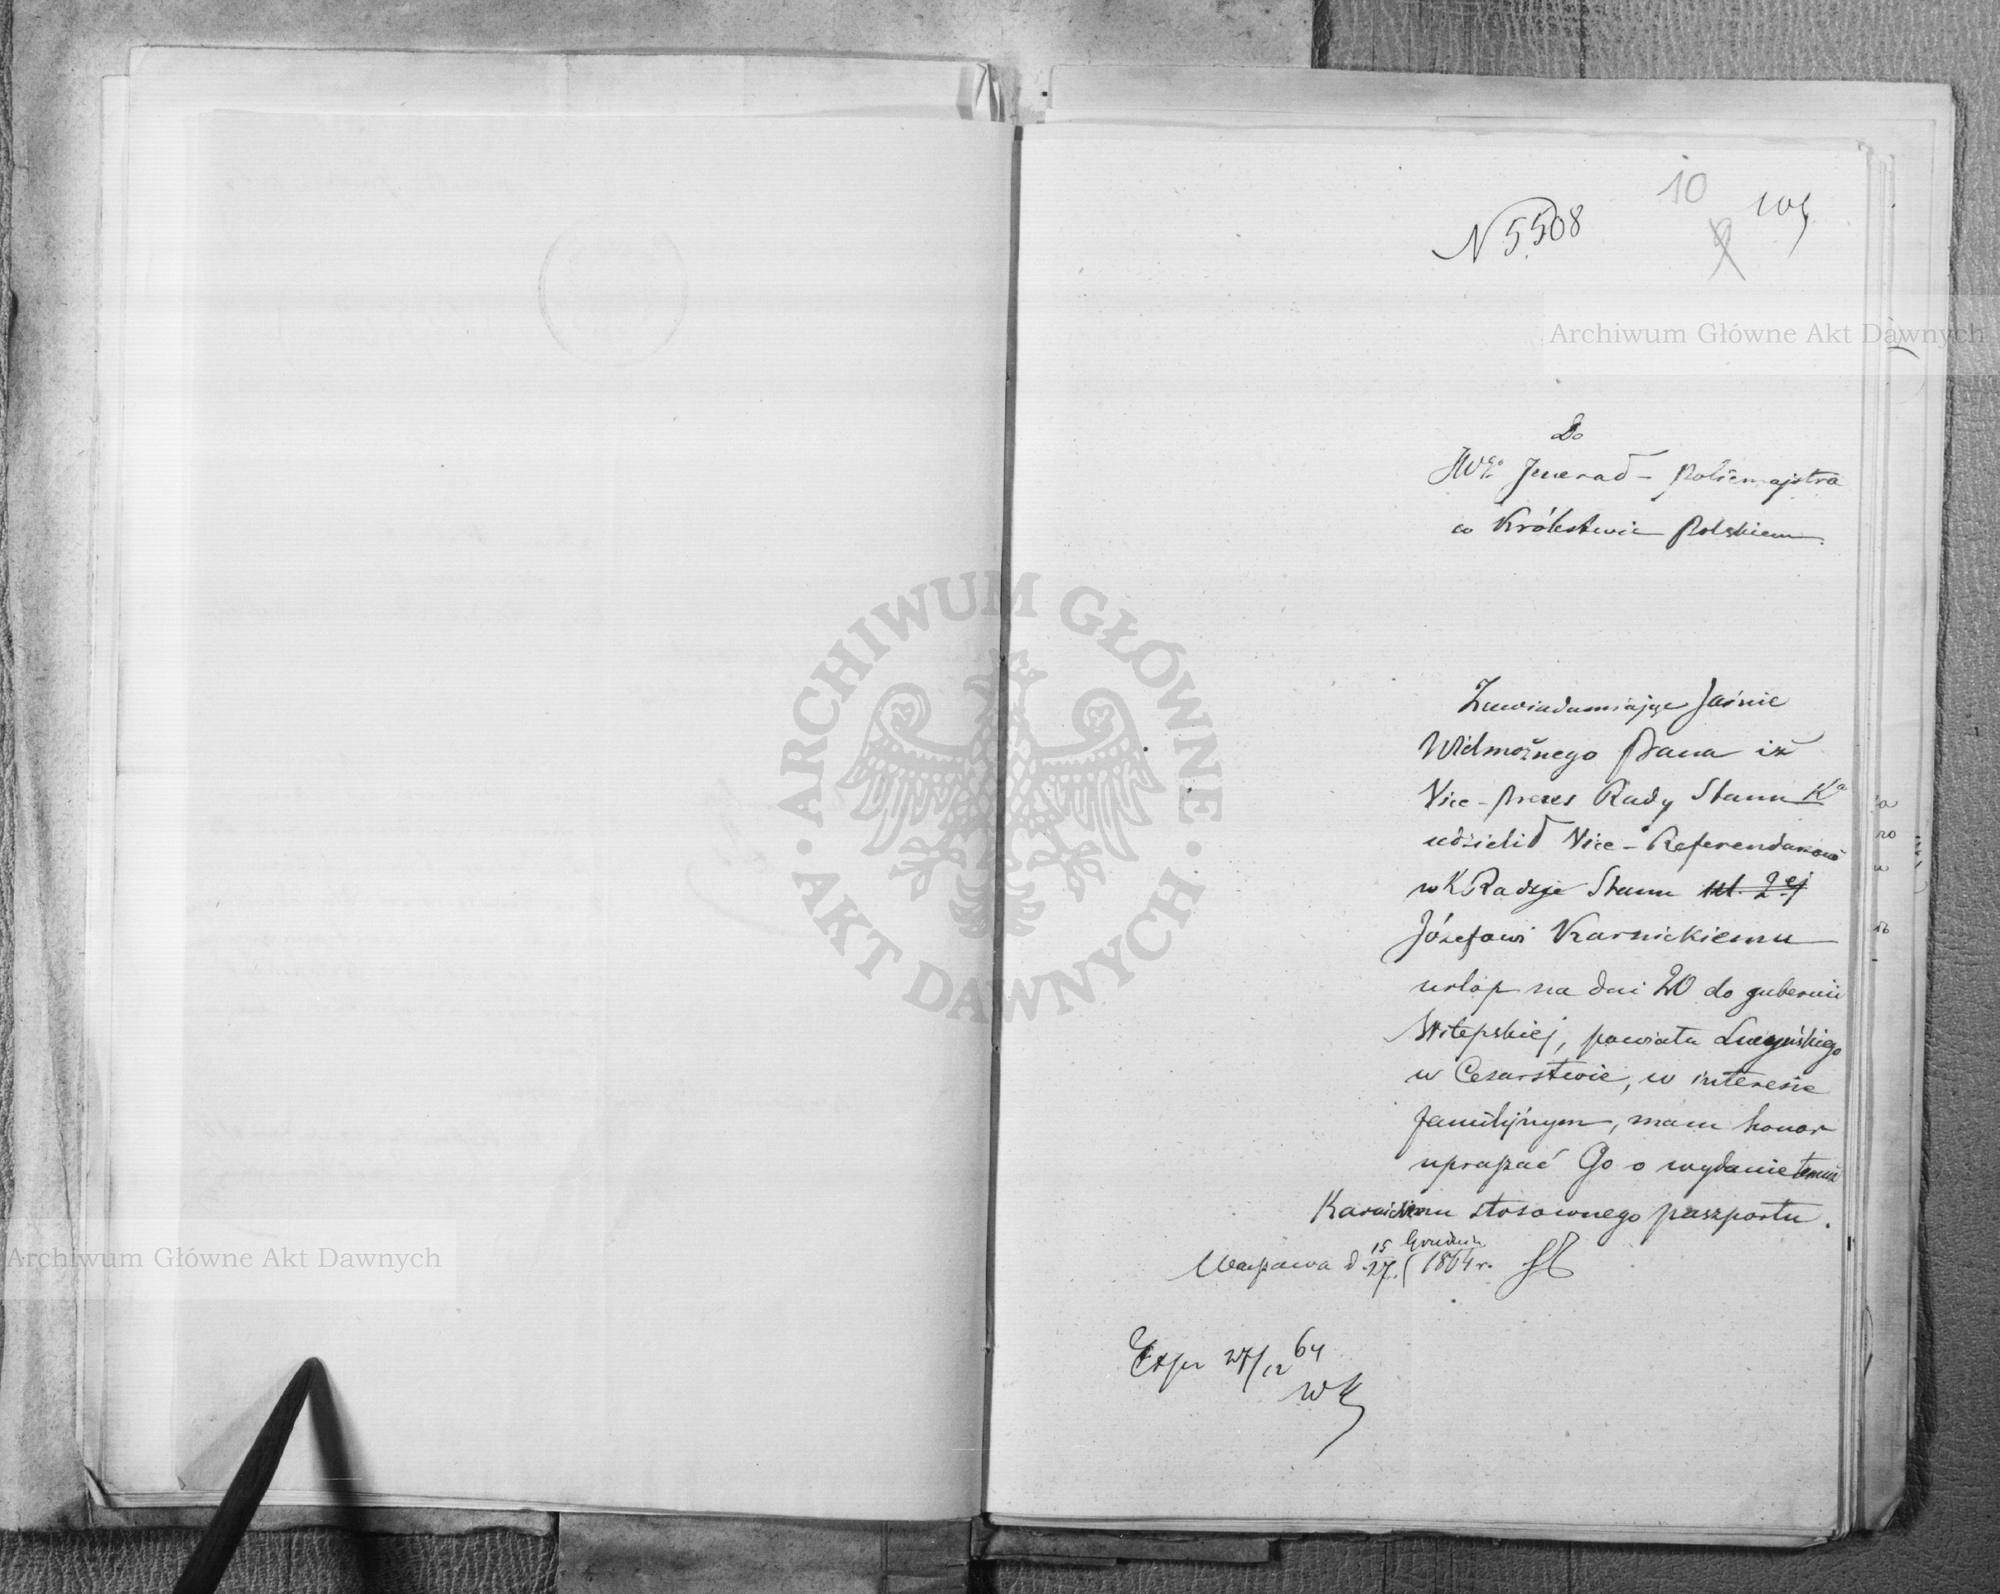 10
N 5508
Archiwum Główne Akt Dawnych
Do
JWgo Jenerał-Policmajstra
w Królestwie Polskiem.
Zawiadamiając Jaśnie
Wielmożnego Pana iż
Vice-Prezes Rady Stanu Ka
udzielił Vice-Referendarzowi
w K Radzie Stanu kl. 2ej
Józefowi Karnickiemu
urlop na dni 20 do gubernii
Witepskiej, powiatu Lucyńskiego
w Cesarstwie, w interesie
familijnym, mam honor
upraszać Go o wydanie temuż
Karnickiemu stosownego paszportu.
Warszawa d. 15/27 Grudnia 1864 r.
Exp 27/12 64
WK
ARCHIWUM GŁÓWNE · AKT DAWNYCH ·
Archiwum Główne Akt Dawnych